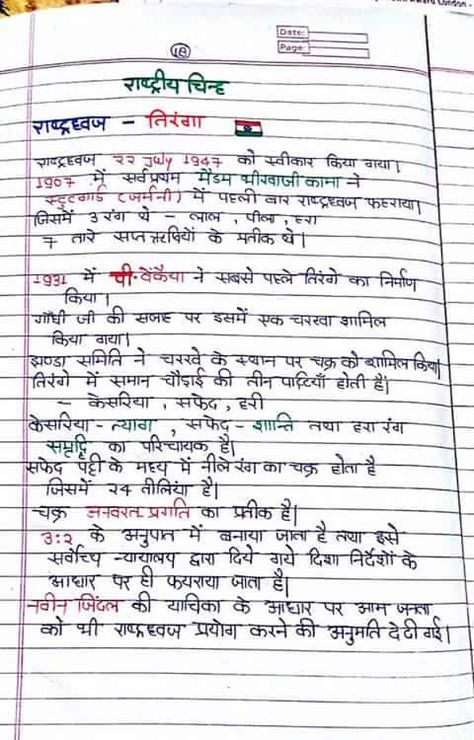 Date:
Page:
१८
राष्ट्रीय चिन्ह
राष्ट्रध्वज - तिरंगा
राष्ट्रध्वज २२ July 1947 को स्वीकार किया गया।
1907 में सर्वप्रथम मैडम भीखाजी कामा ने
स्टुटगार्ड (जर्मनी) में पहली बार राष्ट्रध्वज फहराया।
जिसमें 3 रंग थे - लाल, पीला, हरा
7 तारे सप्तऋषियों के प्रतीक थे।
1931 में पी. वेंकैया ने सबसे पहले तिरंगे का निर्माण
किया।
गाँधी जी की सलाह पर इसमें एक चरखा शामिल
किया गया।
झण्डा समिति ने चरखे के स्थान पर चक्र को शामिल किया।
तिरंगे में समान चौड़ाई की तीन पट्टियाँ होती हैं।
- केसरिया, सफेद, हरी
केसरिया - त्याग, सफेद - शान्ति तथा हरा रंग
समृद्धि का परिचायक है।
सफेद पट्टी के मध्य में नीले रंग का चक्र होता है
जिसमें २4 तीलियां है।
चक्र अनवरत प्रगति का प्रतीक है।
3:२ के अनुपात में बनाया जाता है तथा इसे
सर्वोच्च न्यायालय द्वारा दिये गये दिशा निर्देशों के
आधार पर ही फयराया जाता है।
नवीन जिंदल की याचिका के आधार पर आम जनता
को भी राष्ट्रध्वज प्रयोग करने की अनुमति दे दी गई।